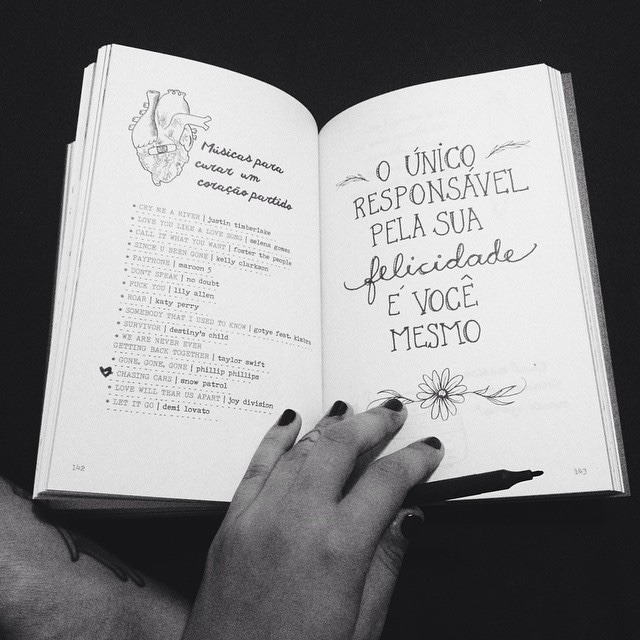 Músicas para
curar um
coração partido
• CRY ME A RIVER | justin timberlake
• LOVE YOU LIKE A LOVE SONG | selena gomez
• CALL IT WHAT YOU WANT | foster the people
• SINCE U BEEN GONE | kelly clarkson
• PAYPHONE | maroon 5
• DON'T SPEAK | no doubt
• FUCK YOU | lily allen
• ROAR | katy perry
• SOMEBODY THAT I USED TO KNOW | gotye feat. kimbra
• SURVIVOR | destiny's child
• WE ARE NEVER EVER
GETTING BACK TOGETHER | taylor swift
• GONE, GONE, GONE | phillip phillips
• CHASING CARS | snow patrol
• LOVE WILL TEAR US APART | joy division
• LET IT GO | demi lovato
142
O ÚNICO
RESPONSÁVEL
PELA SUA
felicidade
É VOCÊ
MESMO
143